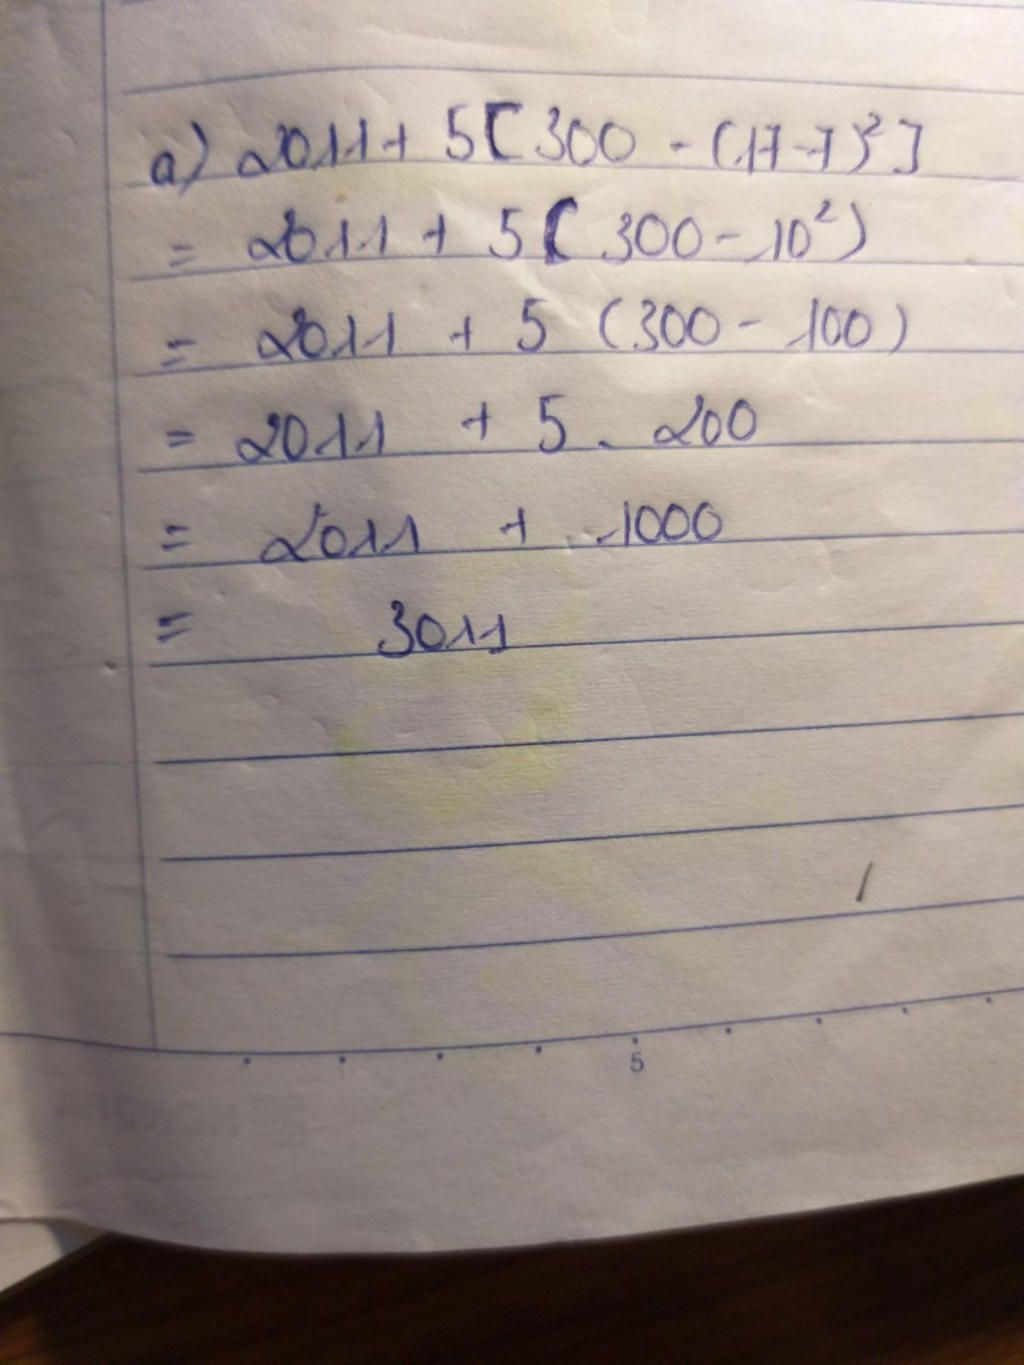 a) 2011 + 5[300 - (17-7)²]
= 2011 + 5(300 - 10²)
= 2011 + 5 (300 - 100)
= 2011 + 5 . 200
= 2011 + 1000
= 3011
5